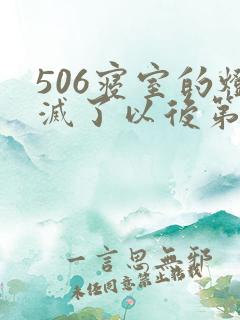 506寝室的燈
滅了以後第
一言思無邪
未经同意禁止转载